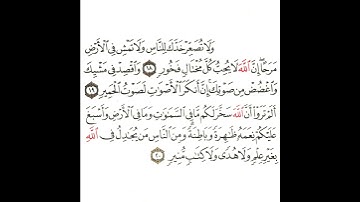 وَلَا تُصَعِّرْ خَدَّكَ لِلنَّاسِ وَلَا تَمْشِ فِي ٱلْأَرْضِ
مَرَحًا إِنَّ ٱللَّهَ لَا يُحِبُّ كُلَّ مُخْتَالٍ فَخُورٍ ١٨ وَٱقْصِدْ فِي مَشْيِكَ
وَٱغْضُضْ مِن صَوْتِكَ إِنَّ أَنكَرَ ٱلْأَصْوَٰتِ لَصَوْتُ ٱلْحَمِيرِ ١٩
أَلَمْ تَرَوْا۟ أَنَّ ٱللَّهَ سَخَّرَ لَكُم مَّا فِي ٱلسَّمَٰوَٰتِ وَمَا فِي ٱلْأَرْضِ وَأَسْبَغَ
عَلَيْكُمْ نِعَمَهُۥ ظَٰهِرَةً وَبَاطِنَةً وَمِنَ ٱلنَّاسِ مَن يُجَٰدِلُ فِي ٱللَّهِ
بِغَيْرِ عِلْمٍ وَلَا هُدًى وَلَا كِتَٰبٍ مُّنِيرٍ ٢٠